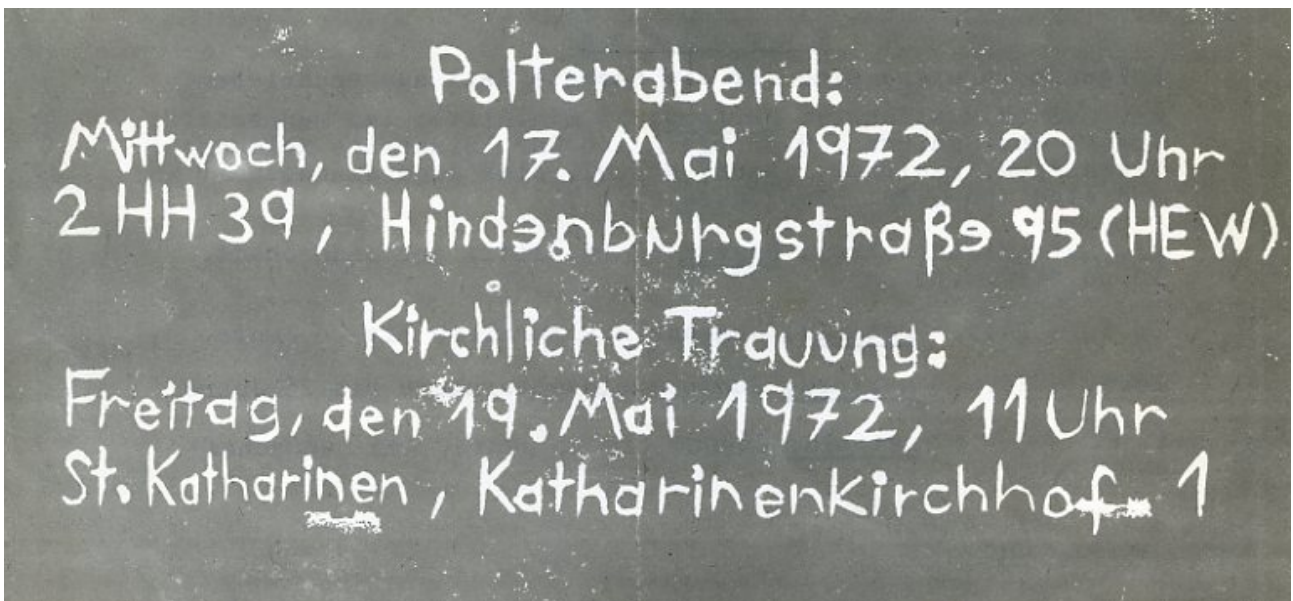 Polterabend:
Mittwoch, den 17. Mai 1972, 20 Uhr
2 HH 39, Hindenburgstraße 95 (HEW)
Kirchliche Trauung:
Freitag, den 19. Mai 1972, 11 Uhr
St. Katharinen, Katharinenkirchhof 1